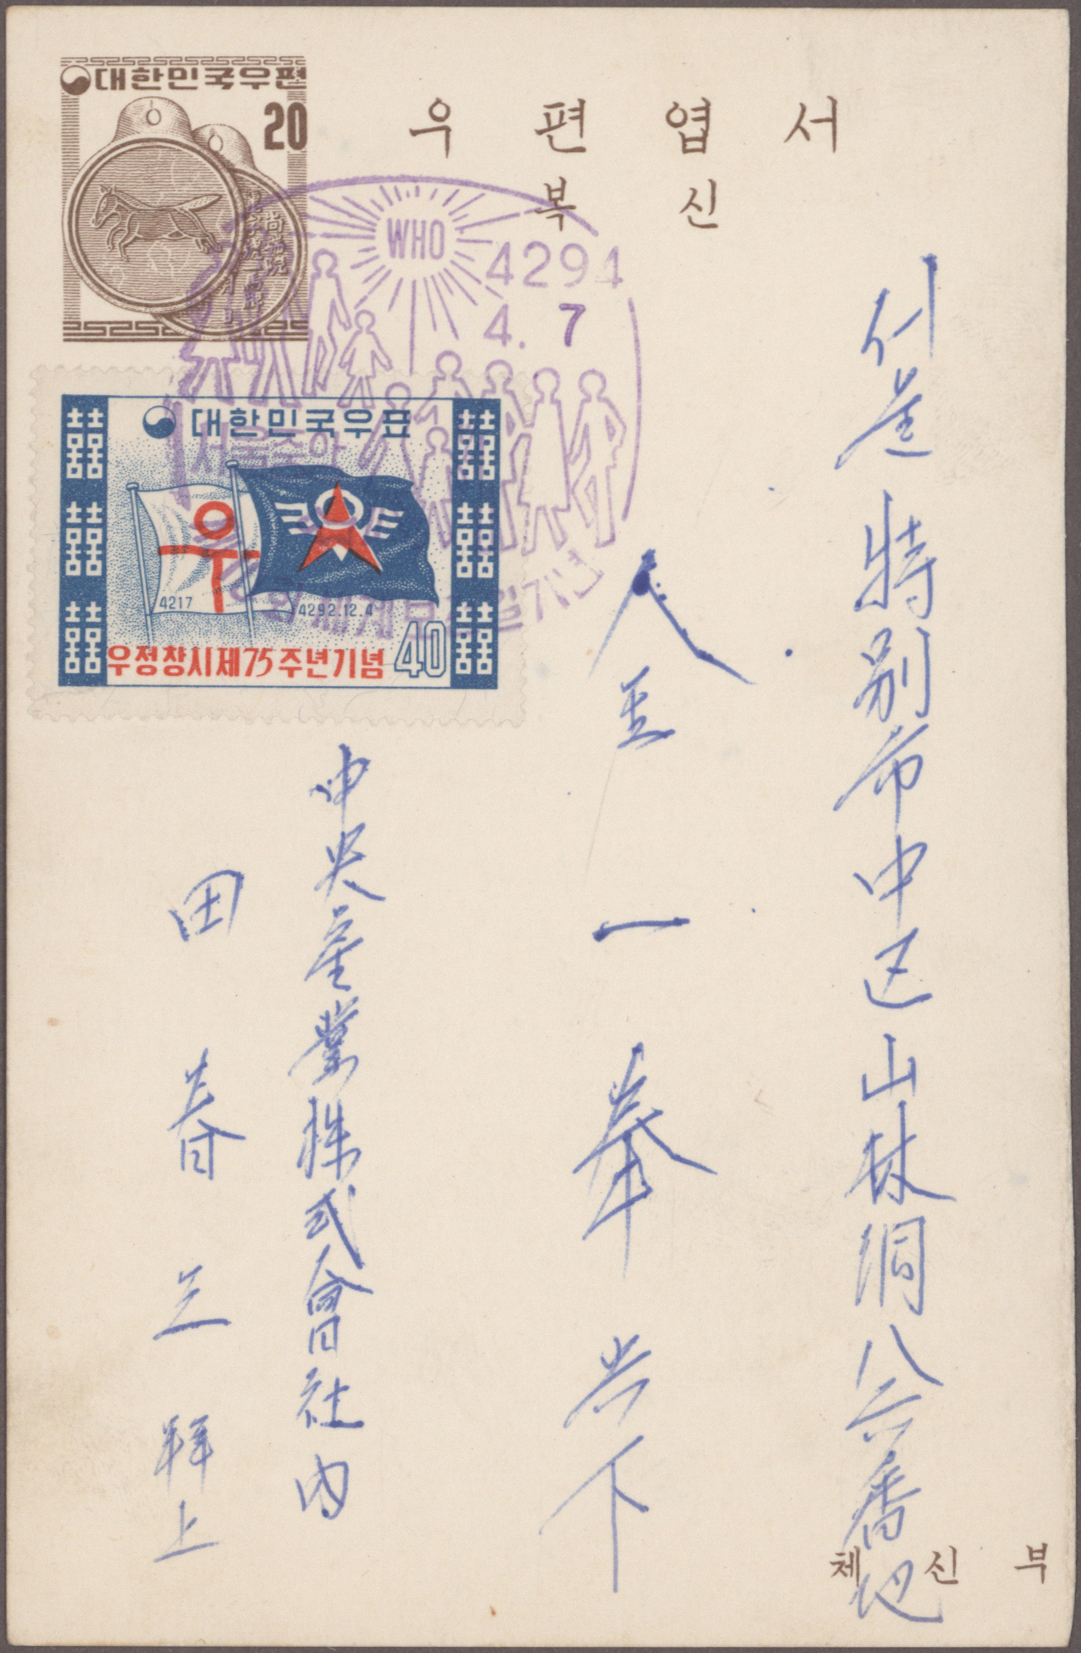 대한민국우편
20
우편엽서
복신
WHO
4294
4. 7
서울중앙
대한민국우표
우
4217
4292.12.4
우정창시제75주년기념
40
서울特別市中区山林洞八六番地
全一奉 씨下
中央産業株式會社内
田春三 拜上
체신부